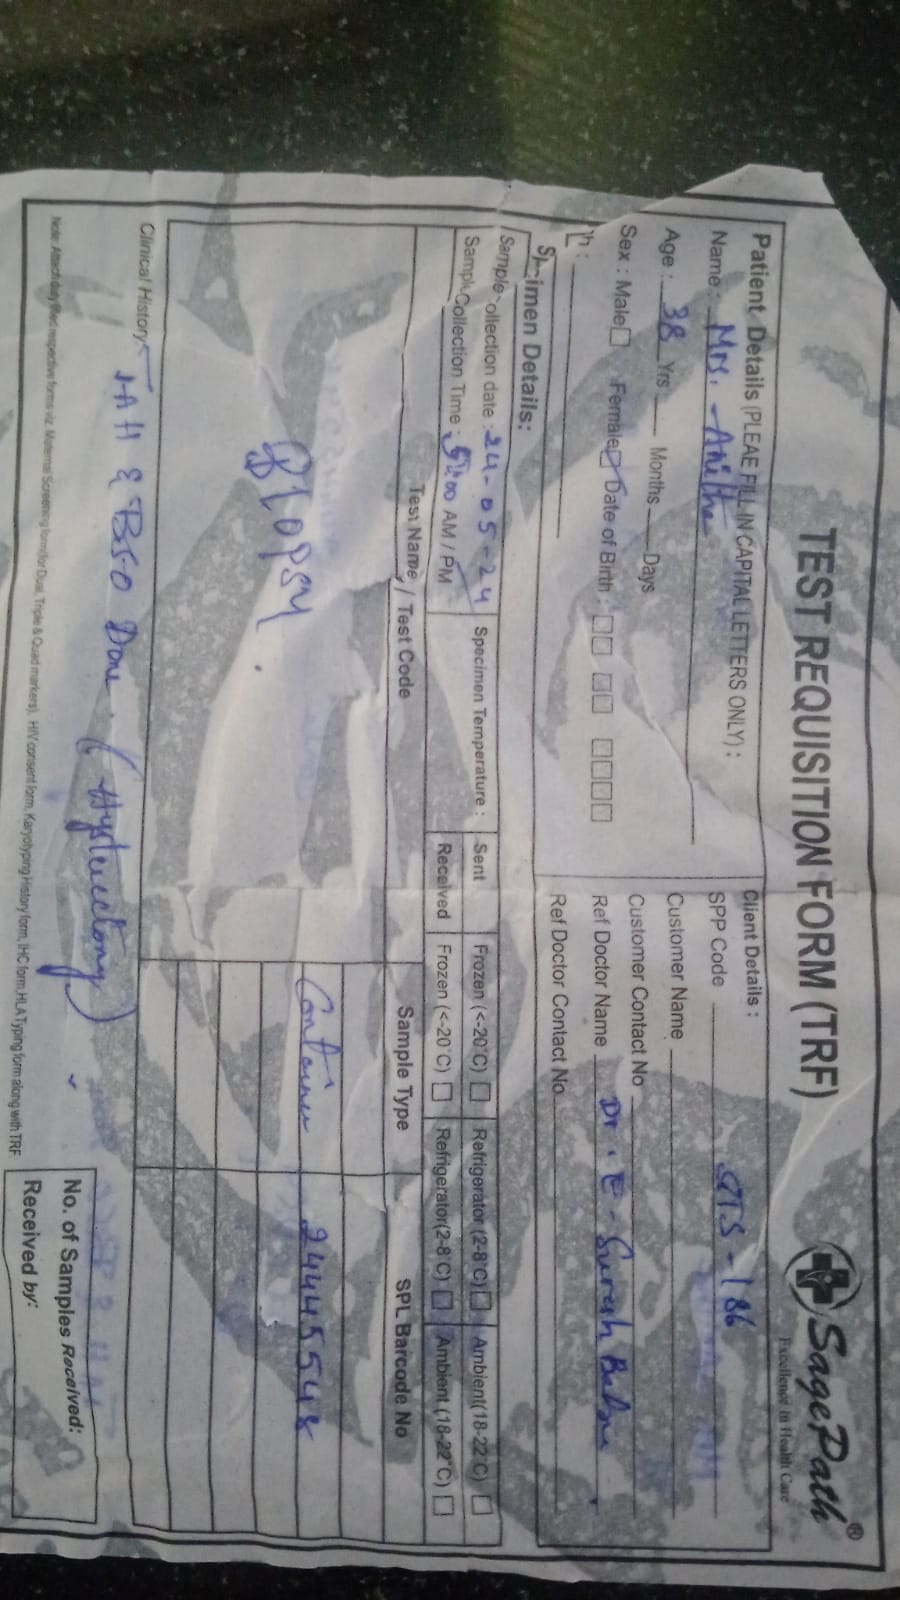 TEST REQUISITION FORM (TRF)
SagePath®
Excellence In Health Care
Patient Details (PLEAE FILL IN CAPITAL LETTERS ONLY) :
Name : Mrs. Anitha
Age : 38 Yrs Months Days
Sex : Male Female Date of Birth :
Ph :
Client Details :
SPP Code GTS - 186
Customer Name
Customer Contact No
Ref Doctor Name Dr. E. Suresh Babu
Ref Doctor Contact No
Specimen Details:
Sample Collection date : 24-05-24
Sample Collection Time : 5:00 AM / PM
Specimen Temperature :
Sent Frozen (<-20°C) Refrigerator (2-8°C) Ambient(18-22°C)
Received Frozen (<-20°C) Refrigerator(2-8°C) Ambient (18-22°C)
Test Name / Test Code Sample Type SPL Barcode No
BIOPSY. Container 24445548
Clinical History: TAH & BSO Done. (Hysterectomy)
Note: Attach duly filled respective forms viz. Maternal Screening form(for Dual, Triple & Quad markers), HIV consent form, Karyotyping History form, IHC form, HLA Typing form along with TRF
No. of Samples Received:
Received by: